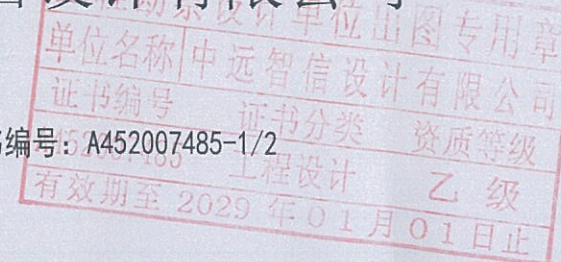 勘察设计单位出图专用章
单位名称 中远智信设计有限公司
证书编号 证书分类 资质等级
编号：A452007485-1/2
工程设计 乙级
有效期至2029年01月01日止